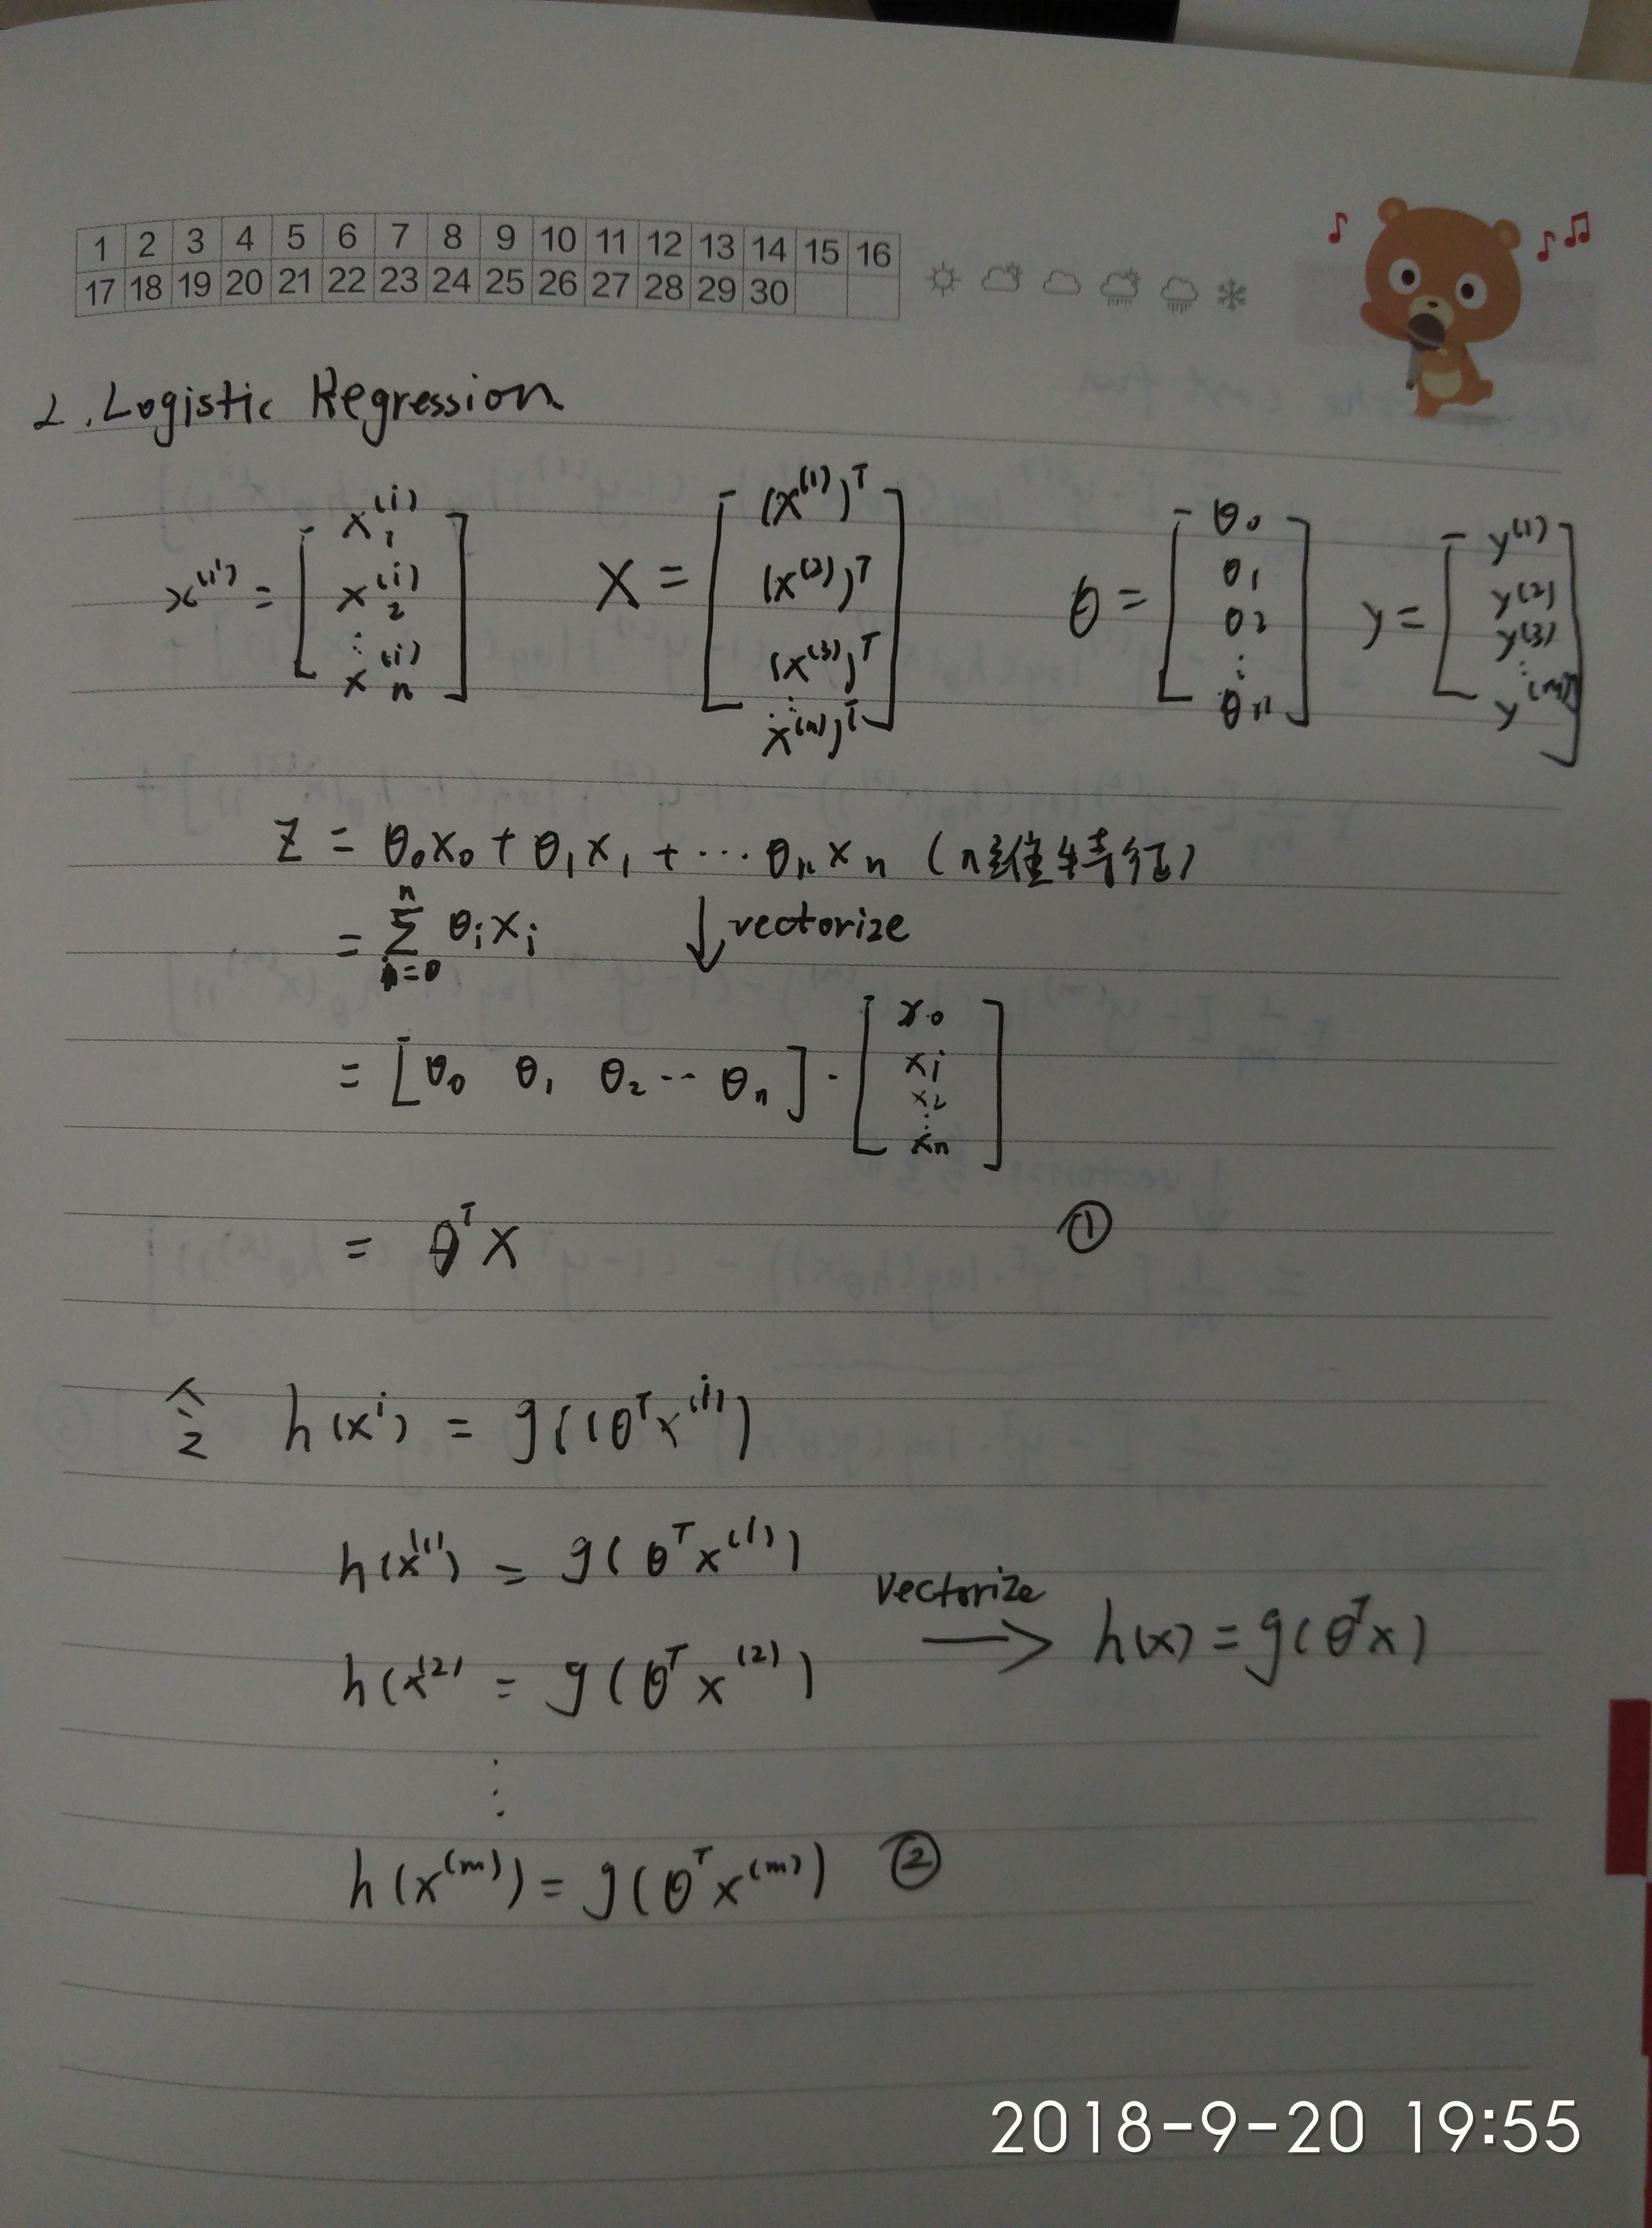 1 2 3 4 5 6 7 8 9 10 11 12 13 14 15 16
17 18 19 20 21 22 23 24 25 26 27 28 29 30
2. Logistic Regression
x^(i) = [x_1^(i) x_2^(i) ⋮ x_n^(i)] X = [(x^(1))^T (x^(2))^T (x^(3))^T ⋮ x^(m))^T] θ = [θ_0 θ_1 θ_2 ⋮ θ_n] y = [y^(1) y^(2) y^(3) ⋮ y^(m)]
z = θ_0 x_0 + θ_1 x_1 + ⋯ θ_n x_n (n维特征)
= Σ_{i=0}^{n} θ_i x_i ↓ vectorize
= [θ_0 θ_1 θ_2 ⋯ θ_n] · [x_0 x_1 x_2 ⋮ x_n]
= θ^T X ①
令 h(x^i) = g((θ^T x^(i))
h(x^(1)) = g(θ^T x^(1))
Vectorize
h(x^(2) = g(θ^T x^(2)) → h(x) = g(θ^T x)
⋮
h(x^(m)) = g(θ^T x^(m)) ②
2018-9-20 19:55